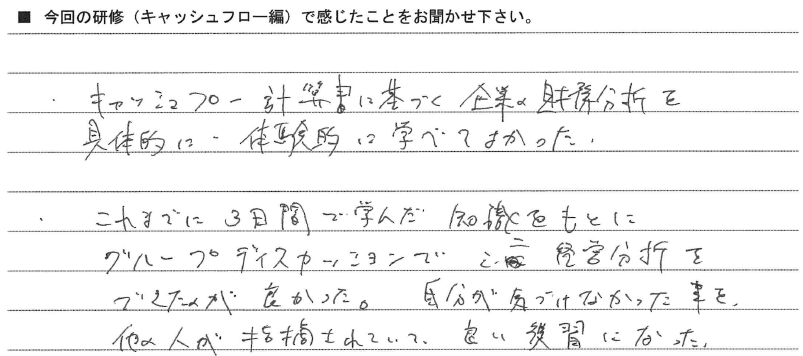 ■ 今回の研修（キャッシュフロー編）で感じたことをお聞かせ下さい。
・キャッシュフロー計算書に基づく企業の財務分析を
具体的に・体験的に学べてよかった。
・これまでに3日間で学んだ知識をもとに
グループディスカッションで 経営分析を
できたのが良かった。自分が気づけなかった事を、
他の人が指摘されていて、良い復習になった。